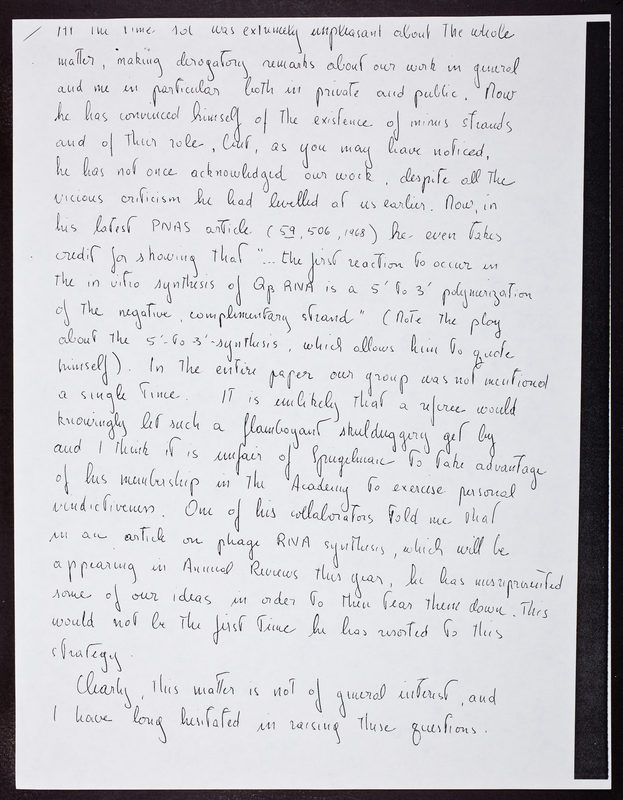 At the time Sol was extremely unpleasant about the whole
matter, making derogatory remarks about our work in general
and me in particular both in private and public. Now
he has convinced himself of the existence of minus strands
and of their role, but, as you may have noticed,
he has not once acknowledged our work, despite all the
vicious criticism he had levelled at us earlier. Now, in
his latest PNAS article (59, 506, 1968) he even takes
credit for showing that "... the first reaction to occur in
the in vitro synthesis of Qβ RNA is a 5' to 3' polymerization
of the negative, complimentary strand" (Note the ploy
about the 5'-to 3'-synthesis, which allows him to quote
himself). In the entire paper our group was not mentioned
a single time. It is unlikely that a referee would
knowingly let such a flamboyant skulduggery get by
and I think it is unfair of Spiegelman to take advantage
of his membership in the Academy to exercise personal
vindictiveness. One of his collaborators told me that
in an article on phage RNA synthesis, which will be
appearing in Annual Reviews this year, he has misrepresented
some of our ideas in order to then tear them down. This
would not be the first time he has resorted to this
strategy.
Clearly, this matter is not of general interest, and
I have long hesitated in raising these questions.